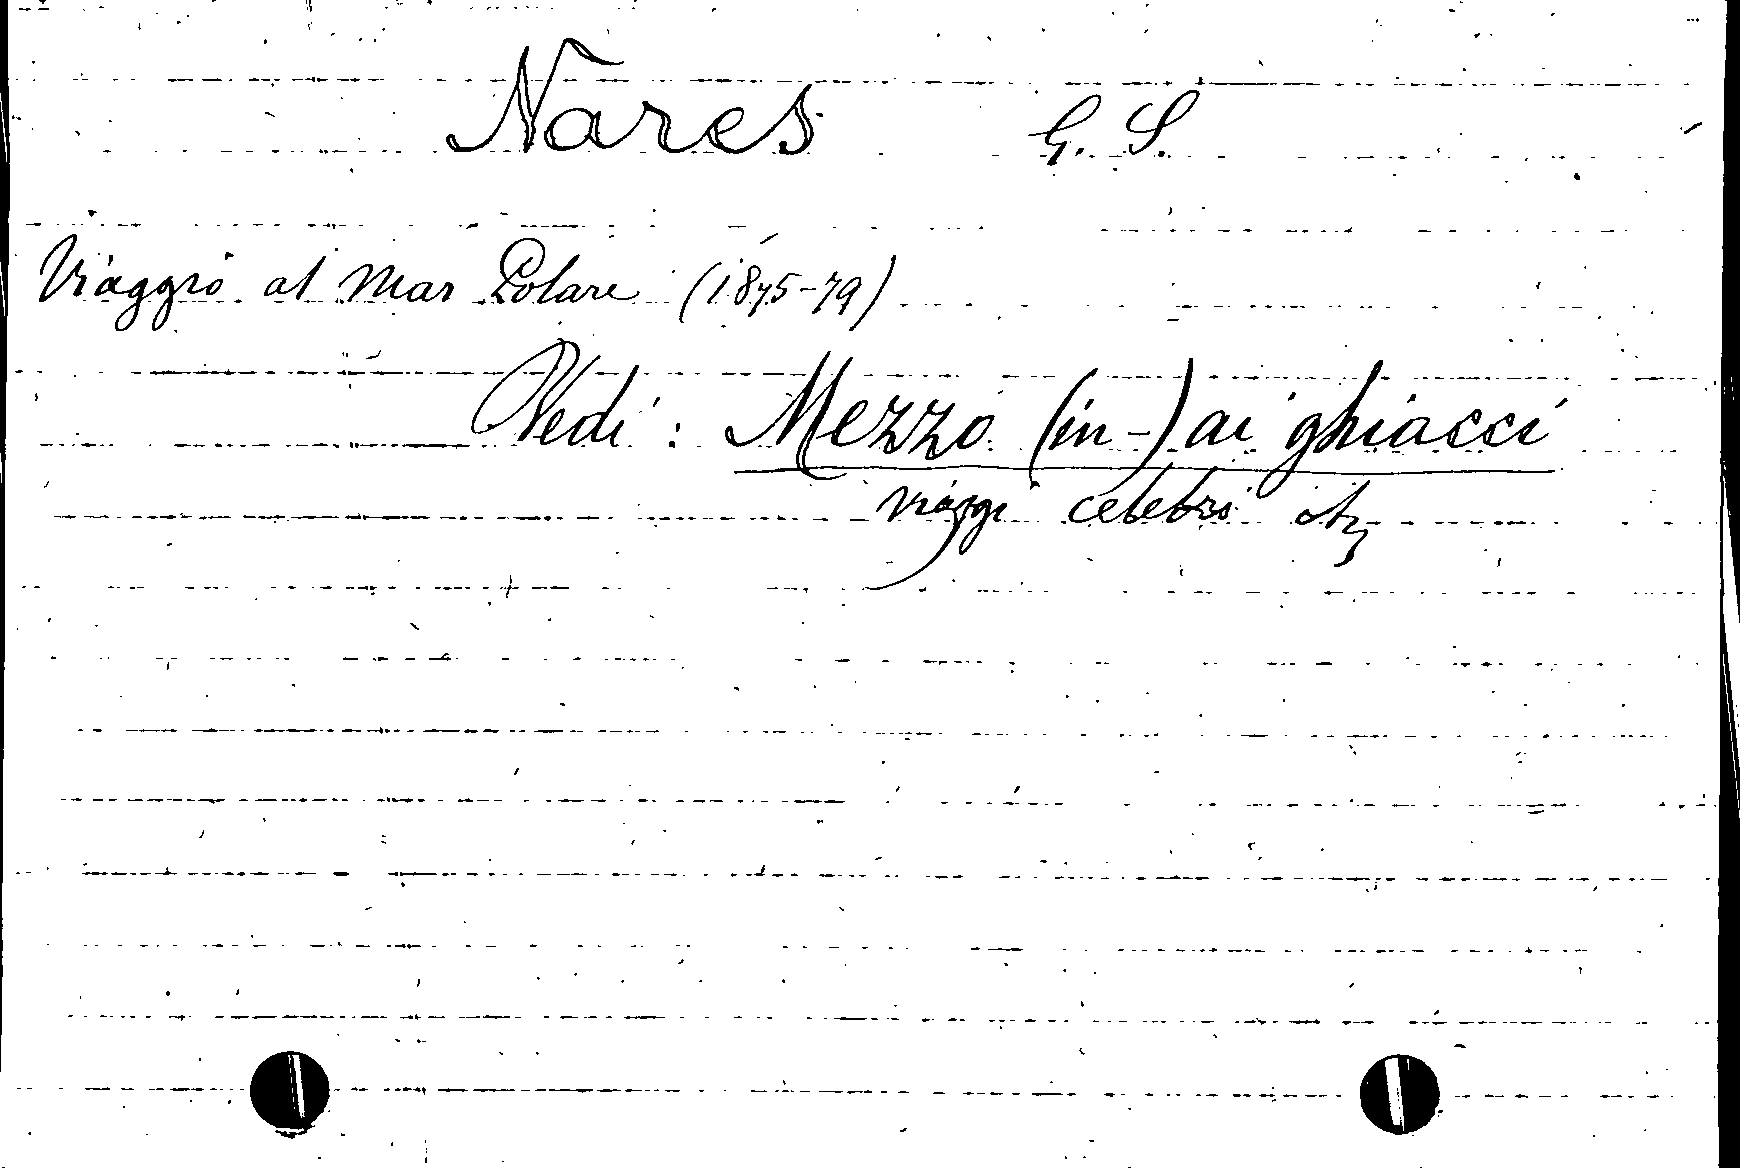 Nares G. S.
Viaggio al Mar Polare (1875-79)
Vedi: Mezzo (in-) ai ghiacci
viaggi celebri etc